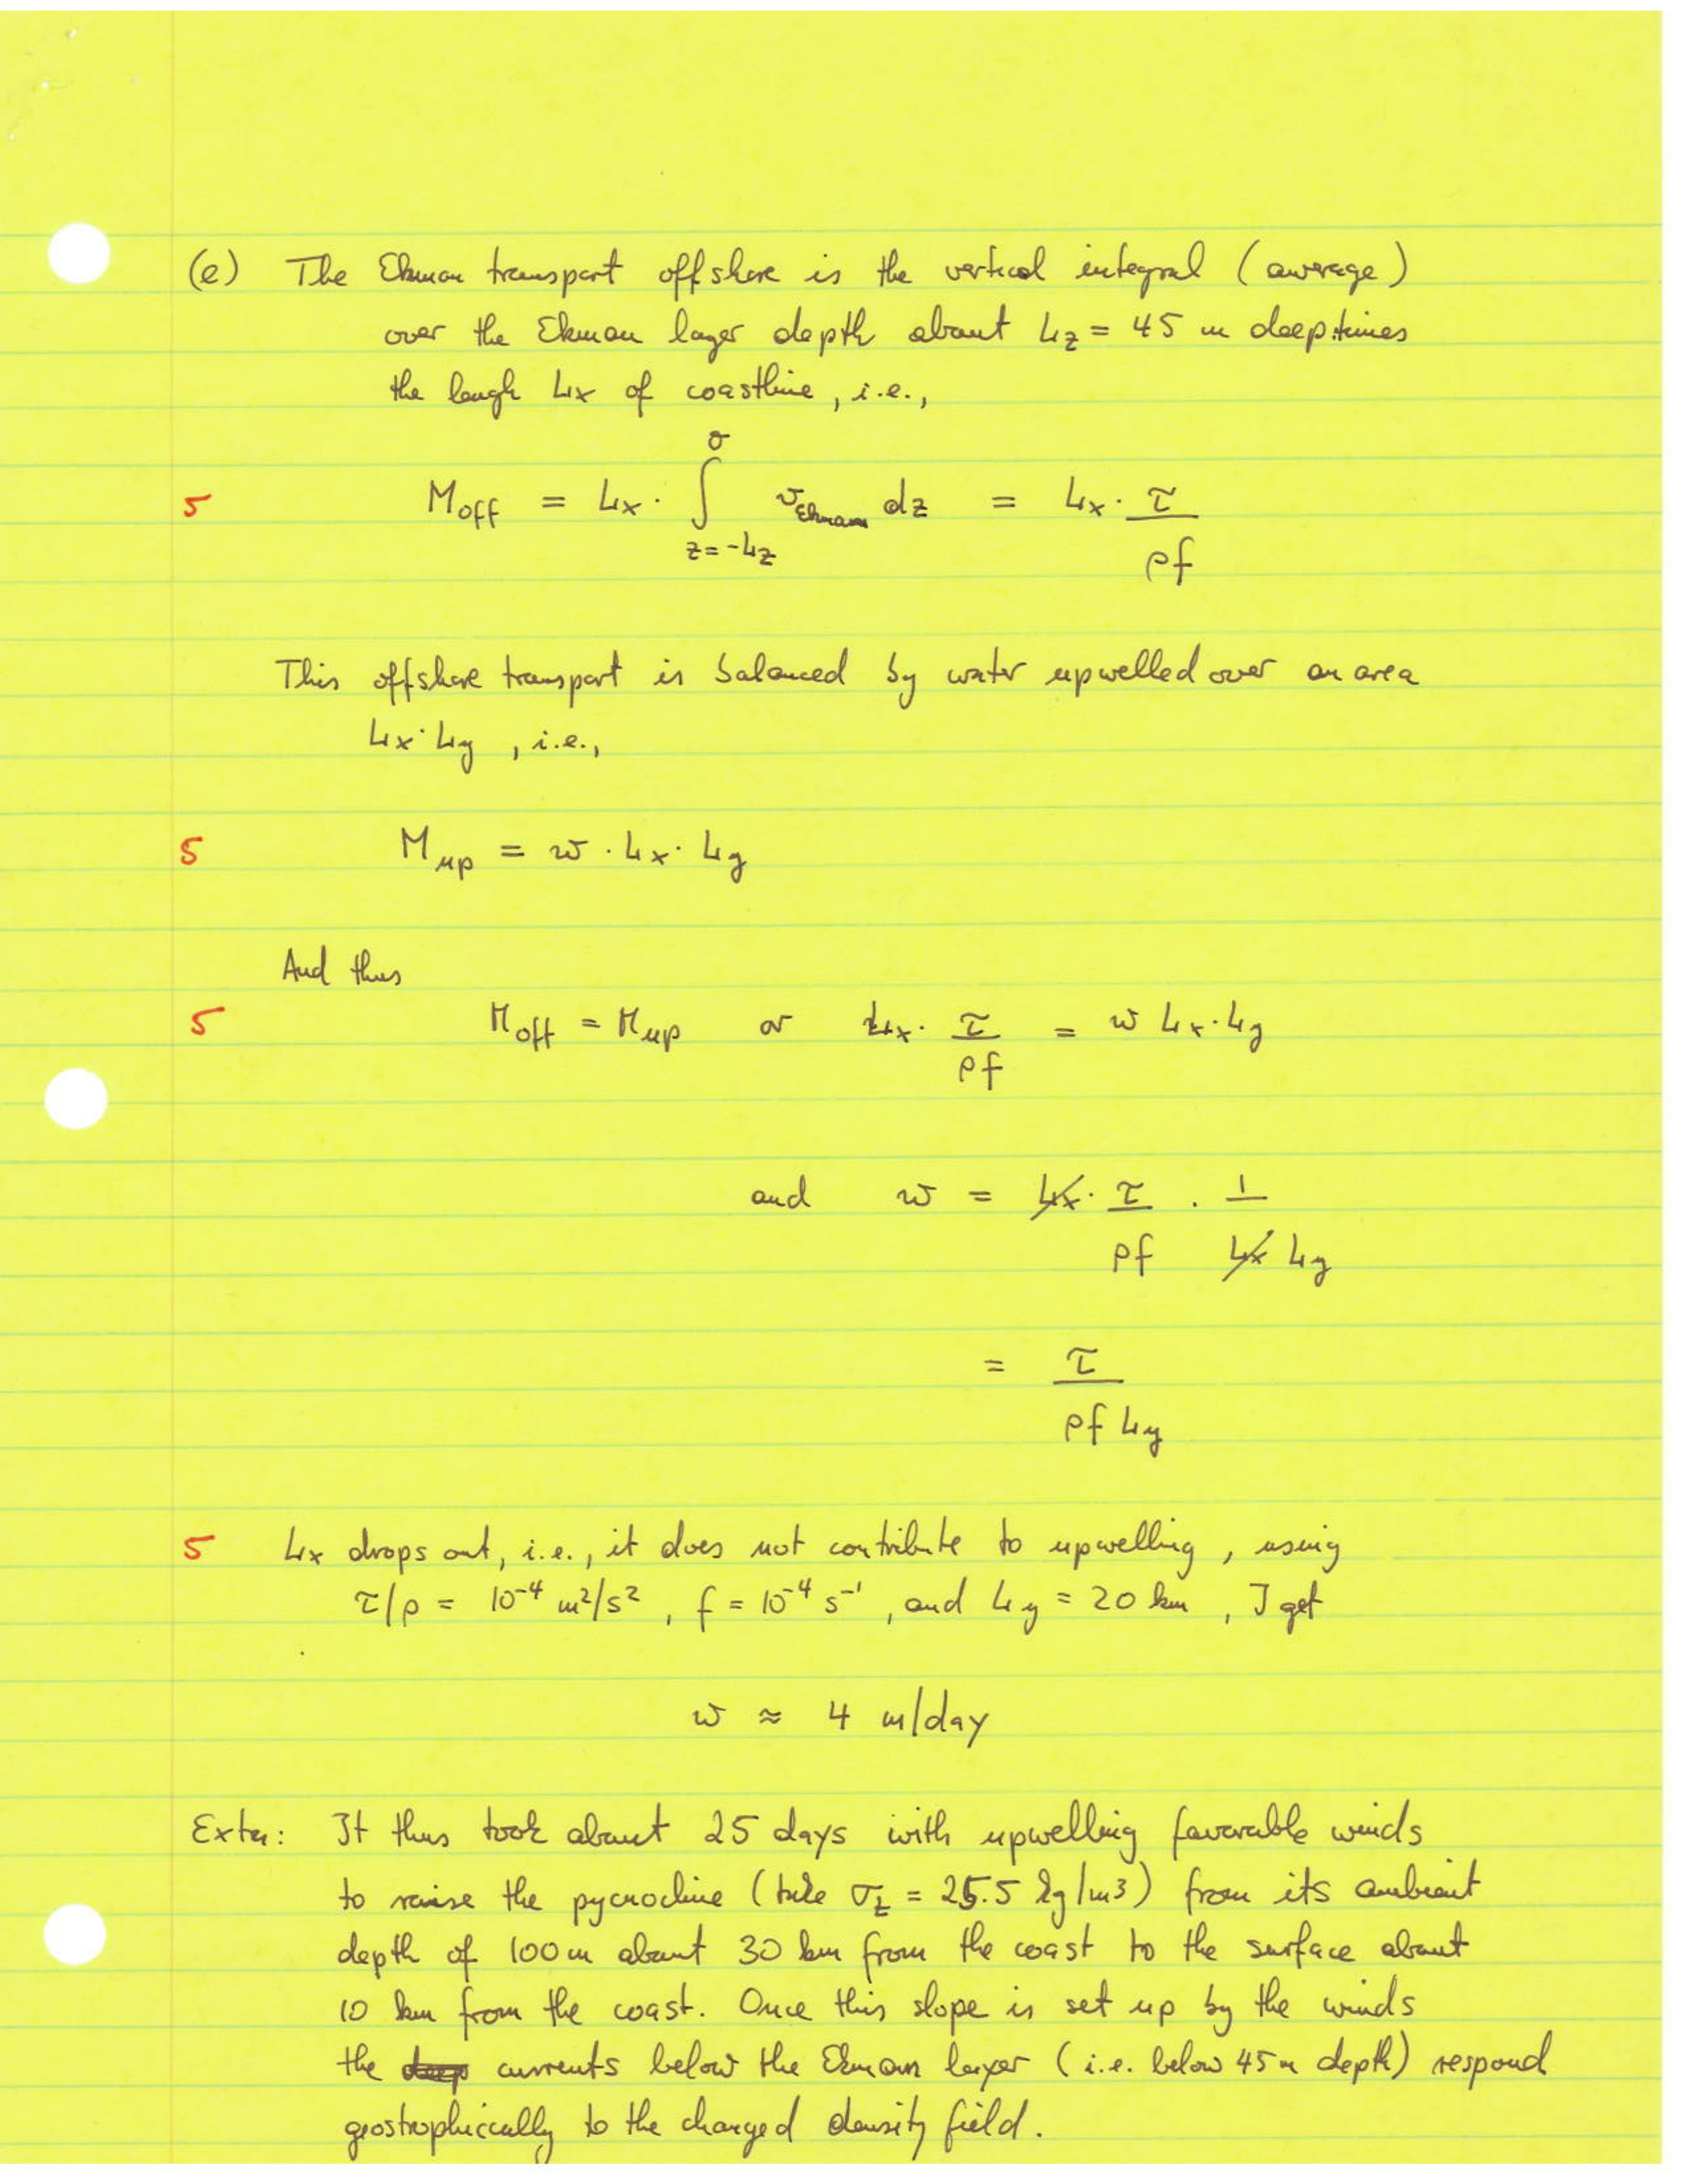 (e) The Ekman transport offshore is the vertical integral (average)
over the Ekman layer depth about Lz = 45 m deep times
the lengh Lx of coastline, i.e.,
5 M_off = Lx · ∫_{z=-Lz}^{0} v_Ekman dz = Lx · τ/ρf
This offshore transport is balanced by water upwelled over an area
Lx·Ly, i.e.,
5 M_up = w · Lx · Ly
And thus
5 M_off = M_up or Lx · τ/ρf = w Lx·Ly
and w = Lx · τ/ρf · 1/Lx Ly
= τ/ρf Ly
5 Lx drops out, i.e., it does not contribute to upwelling, using
τ/ρ = 10⁻⁴ m²/s², f = 10⁻⁴ s⁻¹, and Ly = 20 km, I get
w ≈ 4 m/day
Extra: It thus took about 25 days with upwelling favorable winds
to raise the pycnocline (take σ_t = 25.5 kg/m3) from its ambient
depth of 100 m about 30 km from the coast to the surface about
10 km from the coast. Once this slope is set up by the winds
the deep currents below the Ekman layer (i.e. below 45 m depth) respond
geostrophically to the changed density field.